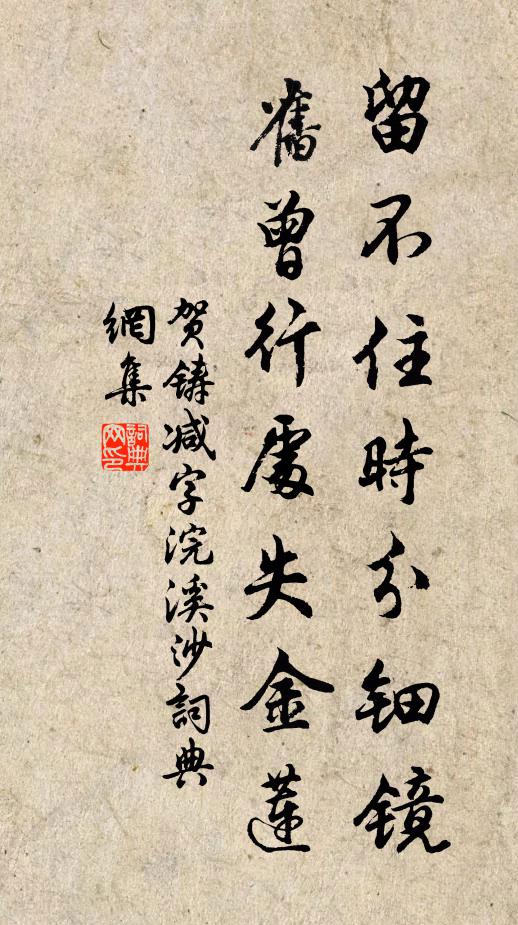 留不住時分鈿鏡
舊曾行處失金蓮
贺鑄减字浣溪沙詞典
網集
詞典
网印